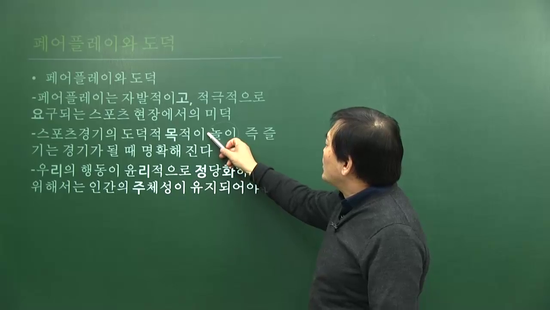 페어플레이와 도덕
• 페어플레이와 도덕
-페어플레이는 자발적이고, 적극적으로
요구되는 스포츠 현장에서의 미덕
-스포츠경기의 도덕적 목적이 놀이, 즉 즐
기는 경기가 될 때 명확해 진다
-우리의 행동이 윤리적으로 정당화
위해서는 인간의 주체성이 유지되어야